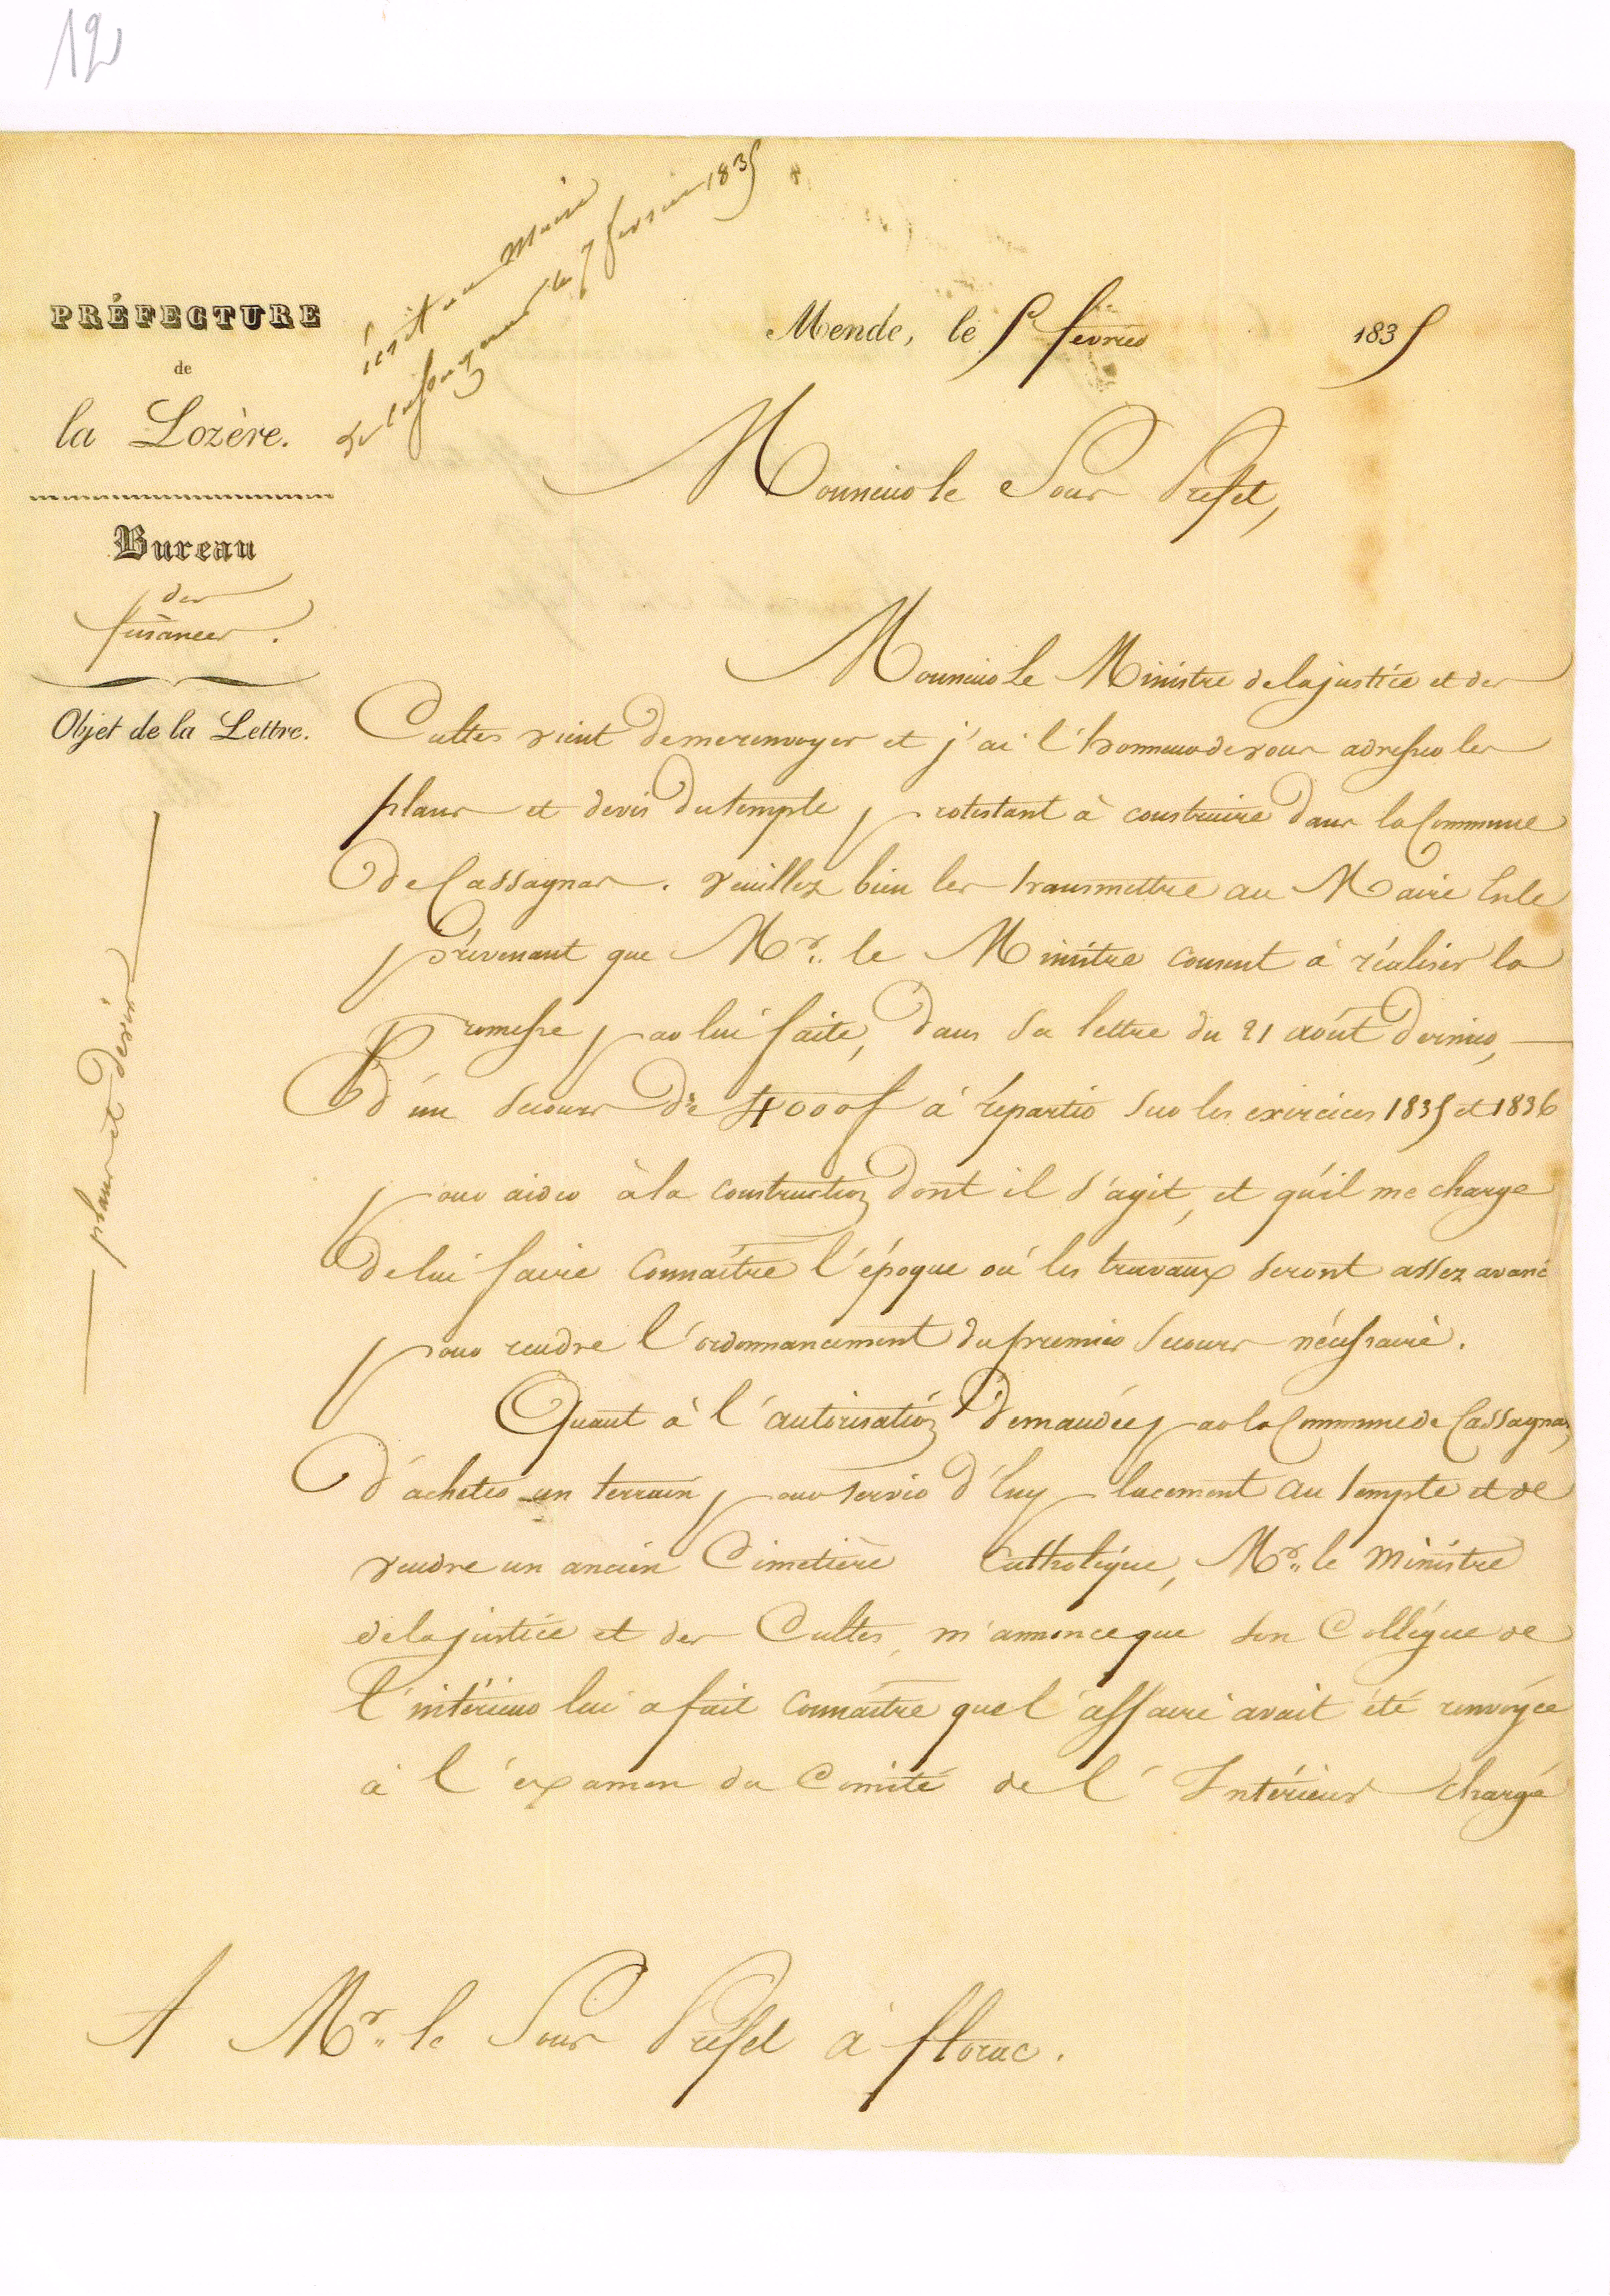 12
écrit au Maire
de Cassagnas le 7 février 1835
PRÉFECTURE
de
la Lozère.
Bureau
des
finances.
Objet de la Lettre.
plans et devis
Mende, le 5 février 1835
Monsieur le Sous Préfet,
Monsieur Le Ministre de la justice et des
Cultes vient de me renvoyer et j'ai l'honneur de vous adresser les
plans et devis du temple protestant à construire dans la Commune
de Cassagnas. veuillez bien les transmettre au Maire En le
prévenant que Mr. le Ministre consent à réaliser la
promesse par lui faite, dans sa lettre du 21 août dernier,
d'un secours de 4000f à répartir sur les exercices 1835 et 1836
pour aider à la construction dont il s'agit, et qu'il me charge
de lui faire connaître l'époque où les travaux seront assez avancé
pour rendre l'ordonnancement du premier secours nécessaire.
Quant à l'autorisation demandée par la Commune de Cassagnas,
d'acheter un terrain pour servir d'Emplacement au temple et de
vendre un ancien Cimetière Catholique, Mr. le Ministre
de la justice et des Cultes, m'annonce que son Collègue de
l'intérieur lui a fait connaître que l'affaire avait été renvoyée
à l'examen du Comité de l'Intérieur chargé
A Mr. le Sous Préfet à florac.